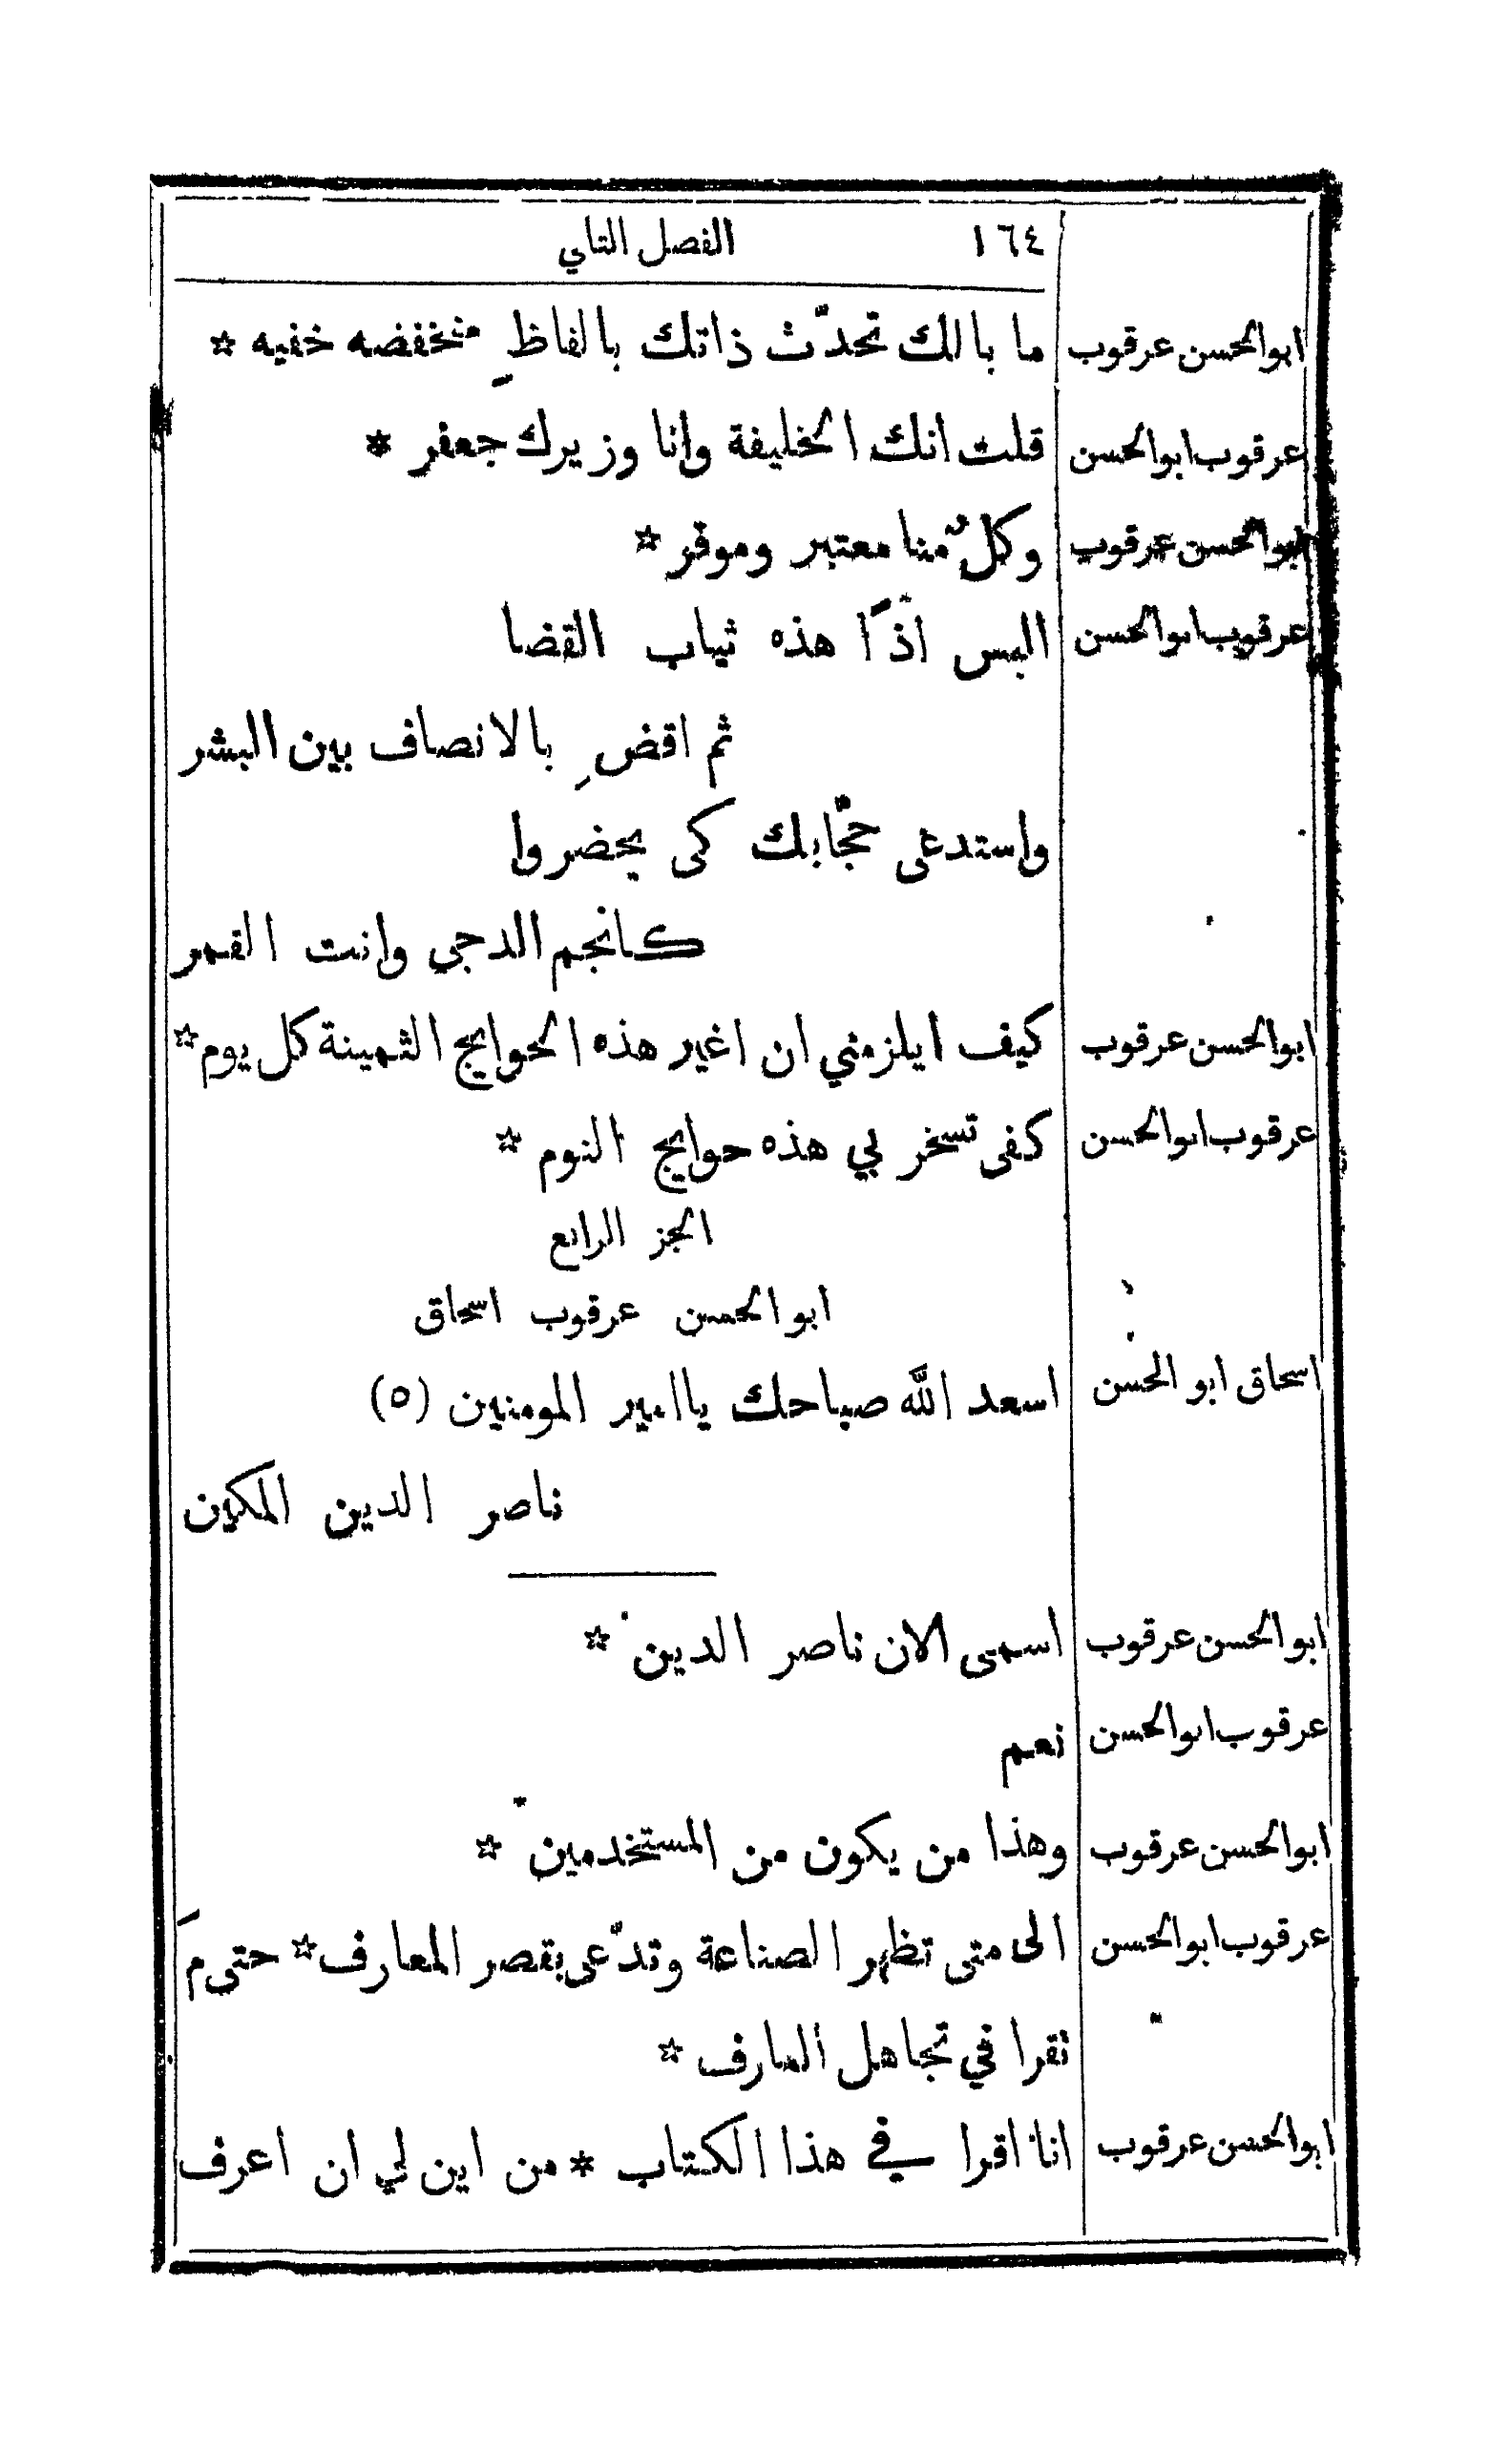 ١٦٤ الفصل التاني
ابوالحسن عرقوب ما بالك تحدّث ذاتك بالفاظٍ منخفضه خفيه *
عرقوب ابوالحسن قلت انك الخليفة وانا وزيرك جعفر *
ابوالحسن عرقوب وكلٌ منا معتبر وموقر *
عرقوب ابوالحسن البس اذًا هذه ثياب القضا
ثم اقضِ بالانصاف بين البشر
واستدعى حجّابك كى يحضروا
كانجم الدجى وانت القمر
ابوالحسن عرقوب كيف ايلزمني ان اغير هذه الحوايج الثمينة كل يوم *
عرقوب ابوالحسن كفى تسخر بي هذه حوايج النوم *
الجز الرابع
ابوالحسن عرقوب اسحاق
اسحاق ابو الحسن اسعد الله صباحك ياامير المومنين (٥)
ناصر الدين المكين
ابوالحسن عرقوب اسمى الان ناصر الدين *
عرقوب ابوالحسن نعم
ابوالحسن عرقوب وهذا من يكون من المستخدمين *
عرقوب ابوالحسن الى متى تظهر الصناعة وتدّعى بقصر المعارف * حتى مَ
نقرا في تجاهل العارف *
ابوالحسن عرقوب انا اقرا في هذا الكتاب * من اين لي ان اعرف